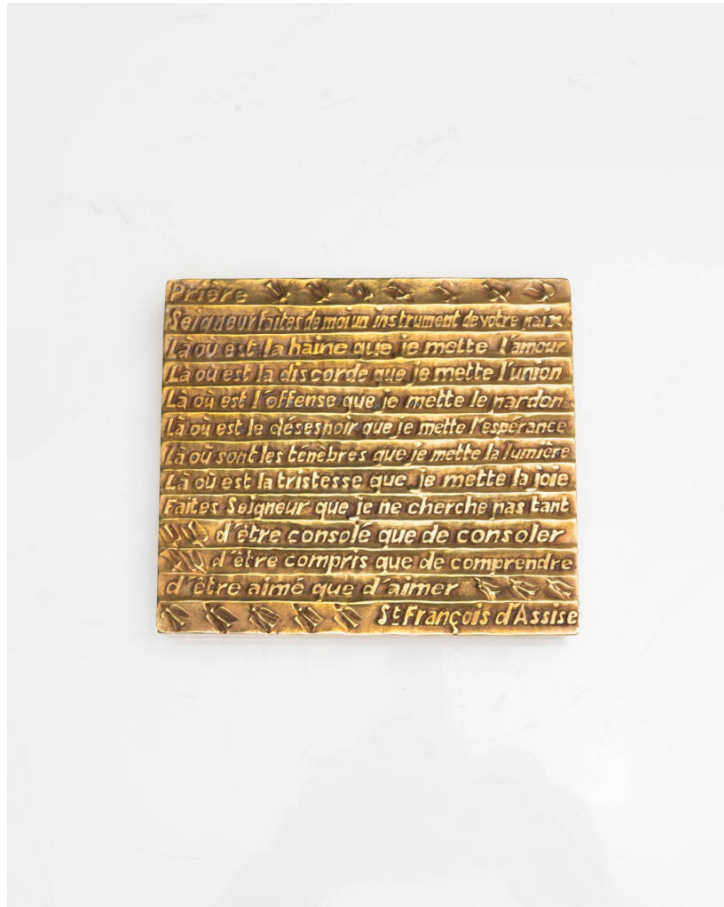 Prière
Seigneur faites de moi un instrument de votre paix
Là où est la haine que je mette l'amour
Là où est la discorde que je mette l'union
Là où est l'offense que je mette le pardon
Là où est le désespoir que je mette l'espérance
Là où sont les ténèbres que je mette la lumière
Là où est la tristesse que je mette la joie
Faites Seigneur que je ne cherche pas tant
d'être consolé que de consoler
d'être compris que de comprendre
d'être aimé que d'aimer
St François d'Assise